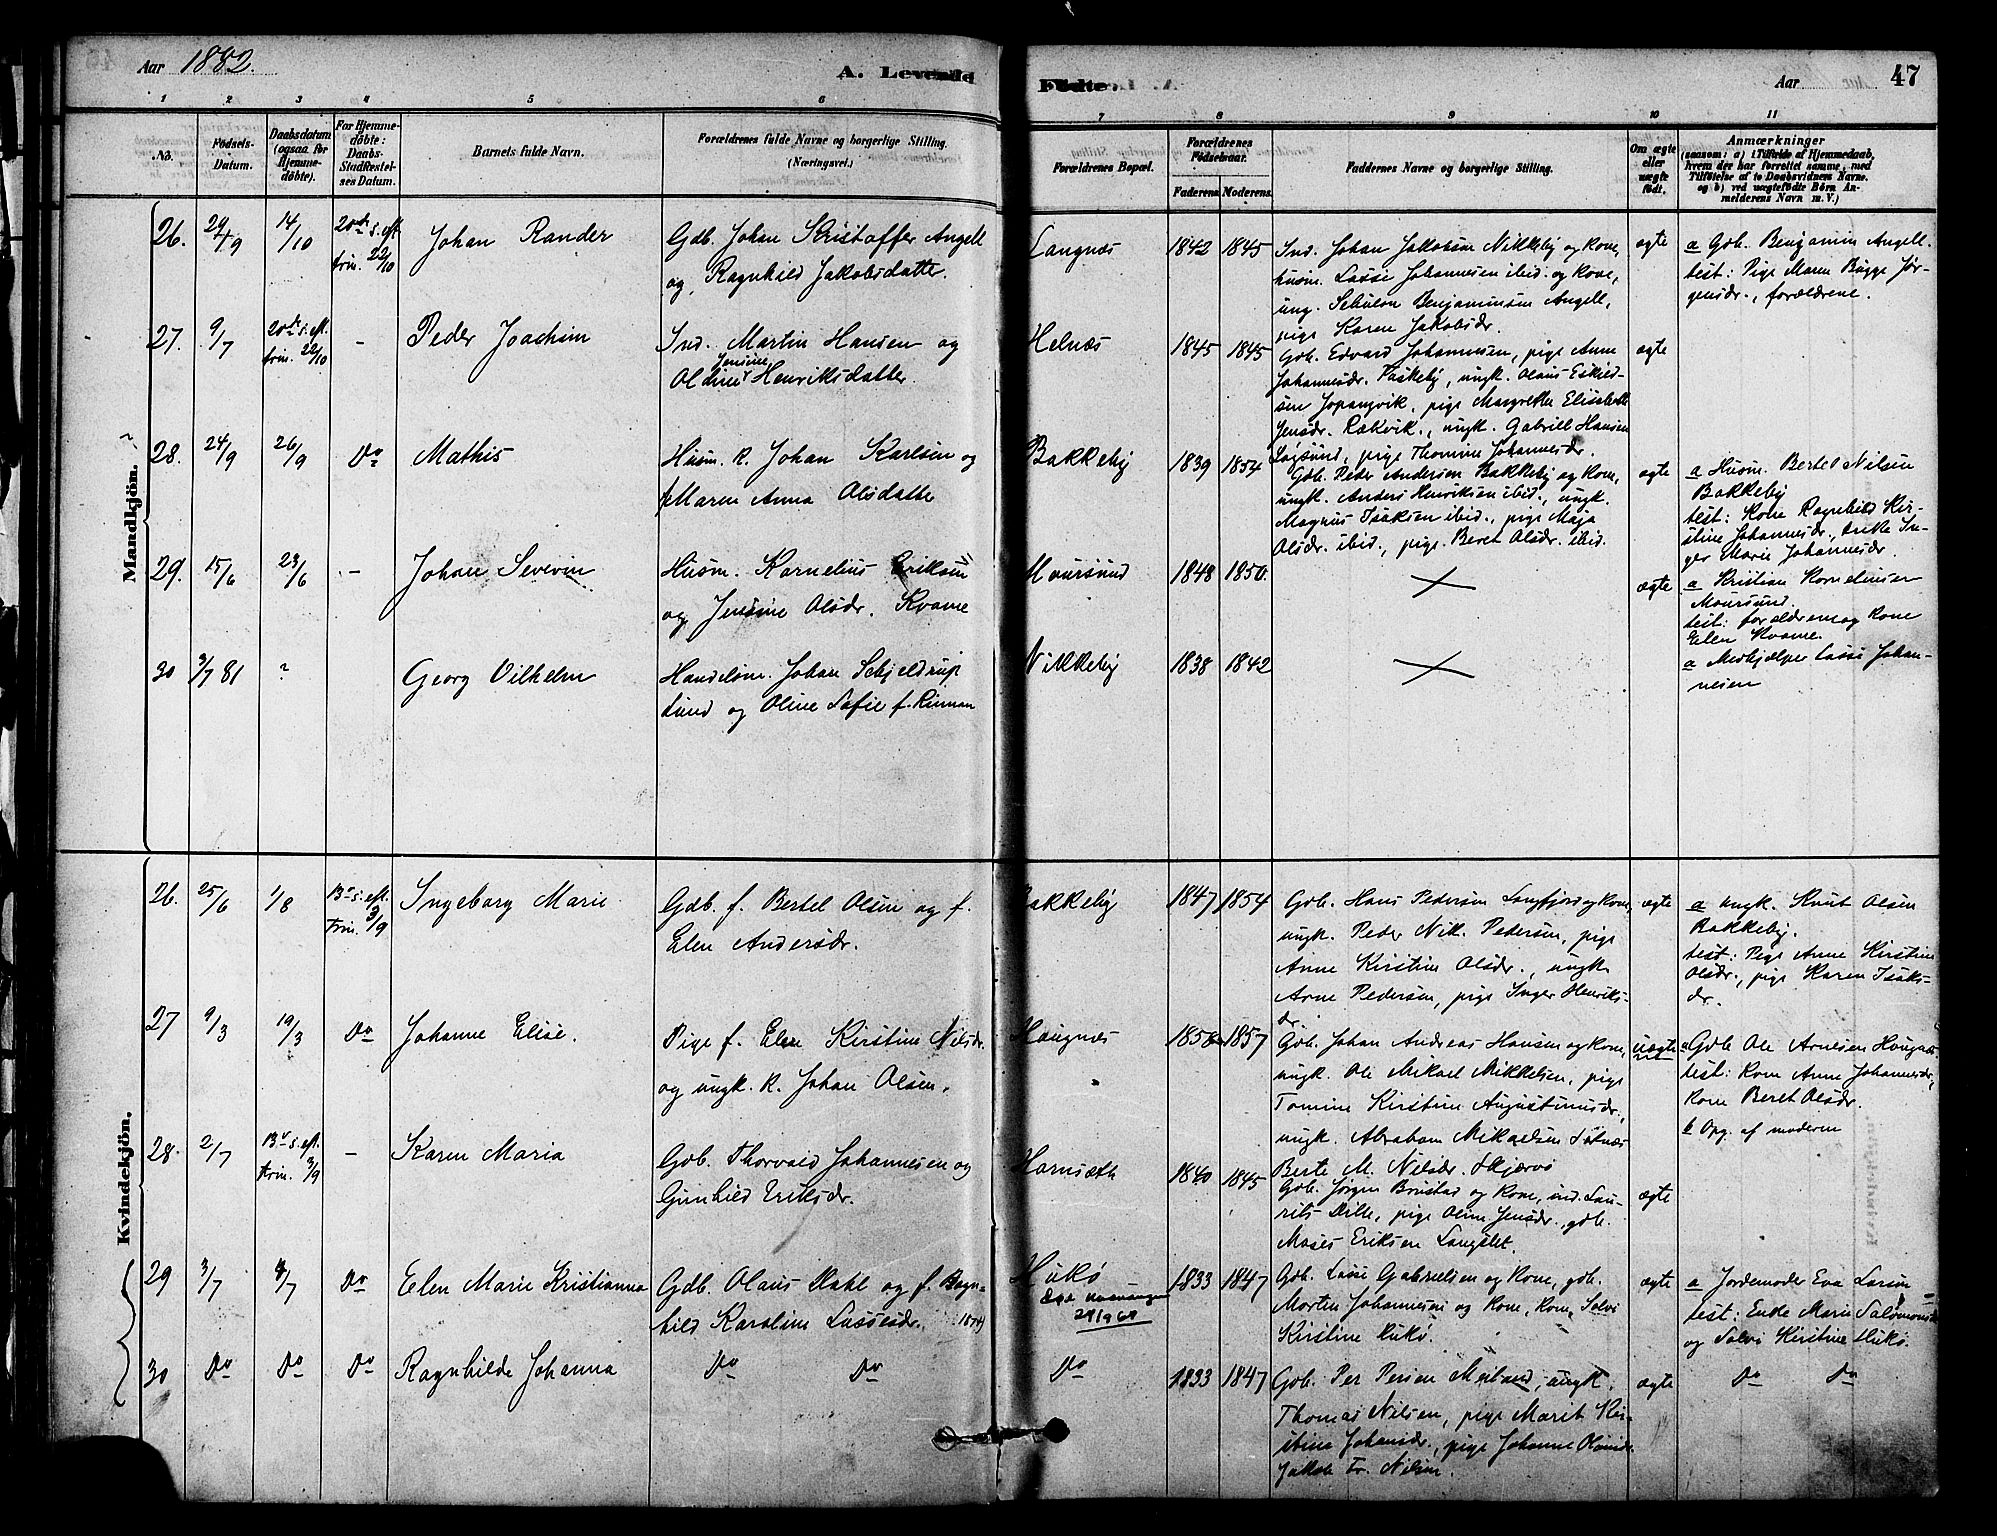 Aar 1882.
A. Levende
Fødte.
Aar
47
1 2 3 4 5 6 7 8 9 10 11
No.
Fødsels-
Datum.
Daabsdatum
(ogsaa for
Hjemme-
døbte).
For Hjemme-
døbte:
Daabs-
Stadfæstel-
ses Datum.
Barnets fulde Navn.
Forældrenes fulde Navne og borgerlige Stilling.
(Næringsvei.)
Forældrenes Bopæl.
Forældrenes
Fødselsaar.
Faderens. Moderens.
Faddernes Navne og borgerlige Stilling.
Om ægte
eller
uægte
født.
Anmærkninger
(saasom: a) i Tilfælde af Hjemmedaab,
hvem der har forrettet samme, med
Tilføielse af to Daabsvidners Navne.
og b) ved uægtefødte Børn An-
melderens Navn m. V.)
Mandkjøn.
26. 29/9 14/10 20de s. eft.
trin. 22/10
Johan Rander
Gdb. Johan Kristoffer Angell
og Ragnhild Jakobsdatter.
Langnæs 1842 1845
Ind. Johan Jakobsen Nikkeby og kone,
husm. Lasse Johannesen ibid. og kone,
ung. Sebulon Benjaminsen Angell,
pige Karen Jakobsdr.
ægte
a Gdb. Benjamin Angell.
test: Pige Maren Bugge Jør-
gensdr., forældrene.
27. 9/7 20de s. eft.
trin. 22/10
-
Peder Joachim
Ind. Martin Hansen og
Jensine
Oldine Henriksdatter
Helnæs 1845 1845
Gdb. Edvard Johannesen, pige Anne
Johannesdr. Taskeby, ungk. Olaus Eskild-
sen Jopangvik, pige Margrethe Elisabeth
Jensdr. Rækvik, ungk. Gabriel Hansen
Løgsund, pige Thomine Johannesdr.
ægte
28. 24/9 26/9 Do
Mathis
Husm. k. Johan Karlsen og
f Maren Anna Olsdatter
Bakkeby 1839 1854
Gdb. Peder Andersen Bakkeby og kone,
ungk. Anders Henriksen ibid., ungk.
Magnus Isaksen ibid., pige Maja
Olsdr. ibid., pige Beret Olsdr. ibid.
ægte
a Husm. Bertel Nilsen
Bakkeby
test: Kone Ragnhild Kir-
stine Johannesdr., enke In-
ger Marie Johannesdr.
29. 15/6 23/6 -
Johan Severin
Husm. Kornelius Eriksen
og Jensine Olsdr. Kvæne
Maursund 1848 1850.
ægte
a Kristian Korneliusen
Maursund.
test: forældrene og kone
Elen Kvæne.
30 3/7 81 ?
Georg Vilhelm
Handelsm. Johan Schjeldrup
Lund og Oline Sofie f. Rinnan
Nikkeby 1838 1842
a Medhjælper Lasse Johan-
nesen
Kvindekjøn.
26. 25/6 1/8 13de s. eft.
trin. 3/9
Ingeborg Marie
Gdb. f. Bertel Olsen og f.
Elen Andersdr.
Bakkeby 1847 1854
Gdb. Hans Pedersen Langfjord og kone,
ungk. Peder Nik. Pedersen, pige
Anne Kirstine Olsdr., ungk.
Arne Pedersen, pige Inger Henriks-
dr.
ægte
a ungk. Knut Olsen
Bakkeby.
test: Pige Anne Kirstine
Olsdr., pige Karen Isaks-
dr.
27 9/3 19/3 Do
Johanne Elise.
Pige f. Elen Kirstine Nilsdr.
og ungk. k. Johan Olsen.
Haugnæs 1858 1857
Gdb. Johan Andreas Hansen og kone,
ungk. Ole Mikael Mikkelsen, pige
Tomine Kirstine Augustinusdr.,
ungk. Abraham Mikaelsen
Berte M. Nilsdr. Skjærvø
uægte
a Gdb Ole Arnesen Haugnæs
test: Kone Anne Johannesdr.,
kone Beret Olsdr.
b Opg. af moderen
28. 2/7 13de s. eft.
trin. 3/9
-
Karen Maria
Gdb. Thorvald Johannesen og
Gunhild Eriksdr.
Hamsæth 1840 1845
Gdb. Jørgen Brustad og kone, ind. Lau-
rits Dille, pige Oline Jensdr., gdb.
Moses Eriksen Langslet.
ægte
29 3/7 4/7 Do
Elen Marie Kristianna
Gdb. Olaus Dahl og f. Ragn-
hild Karoline Lassesdr.
Hukø
1833 1847
Gdb. Lasse Gabrielsen og kone, gdb.
Morten Johannesen og kone, kone Solvi
Kirstine Hukø.
ægte
a Jordemoder Eva Larsen
test: Enke Marie Salomonsdr
og Solvi Kirstine Hukø.
30 Do Do Do
Ragnhilde Johanna
Do Do
Do 1833 1847
Gdb. Per Persen Meiland, ungk.
Thomas Nilsen, pige Marit Kir-
stina Johansdr., pige Johanne
Jakob Tr. Nilsen.
ægte
Do Do